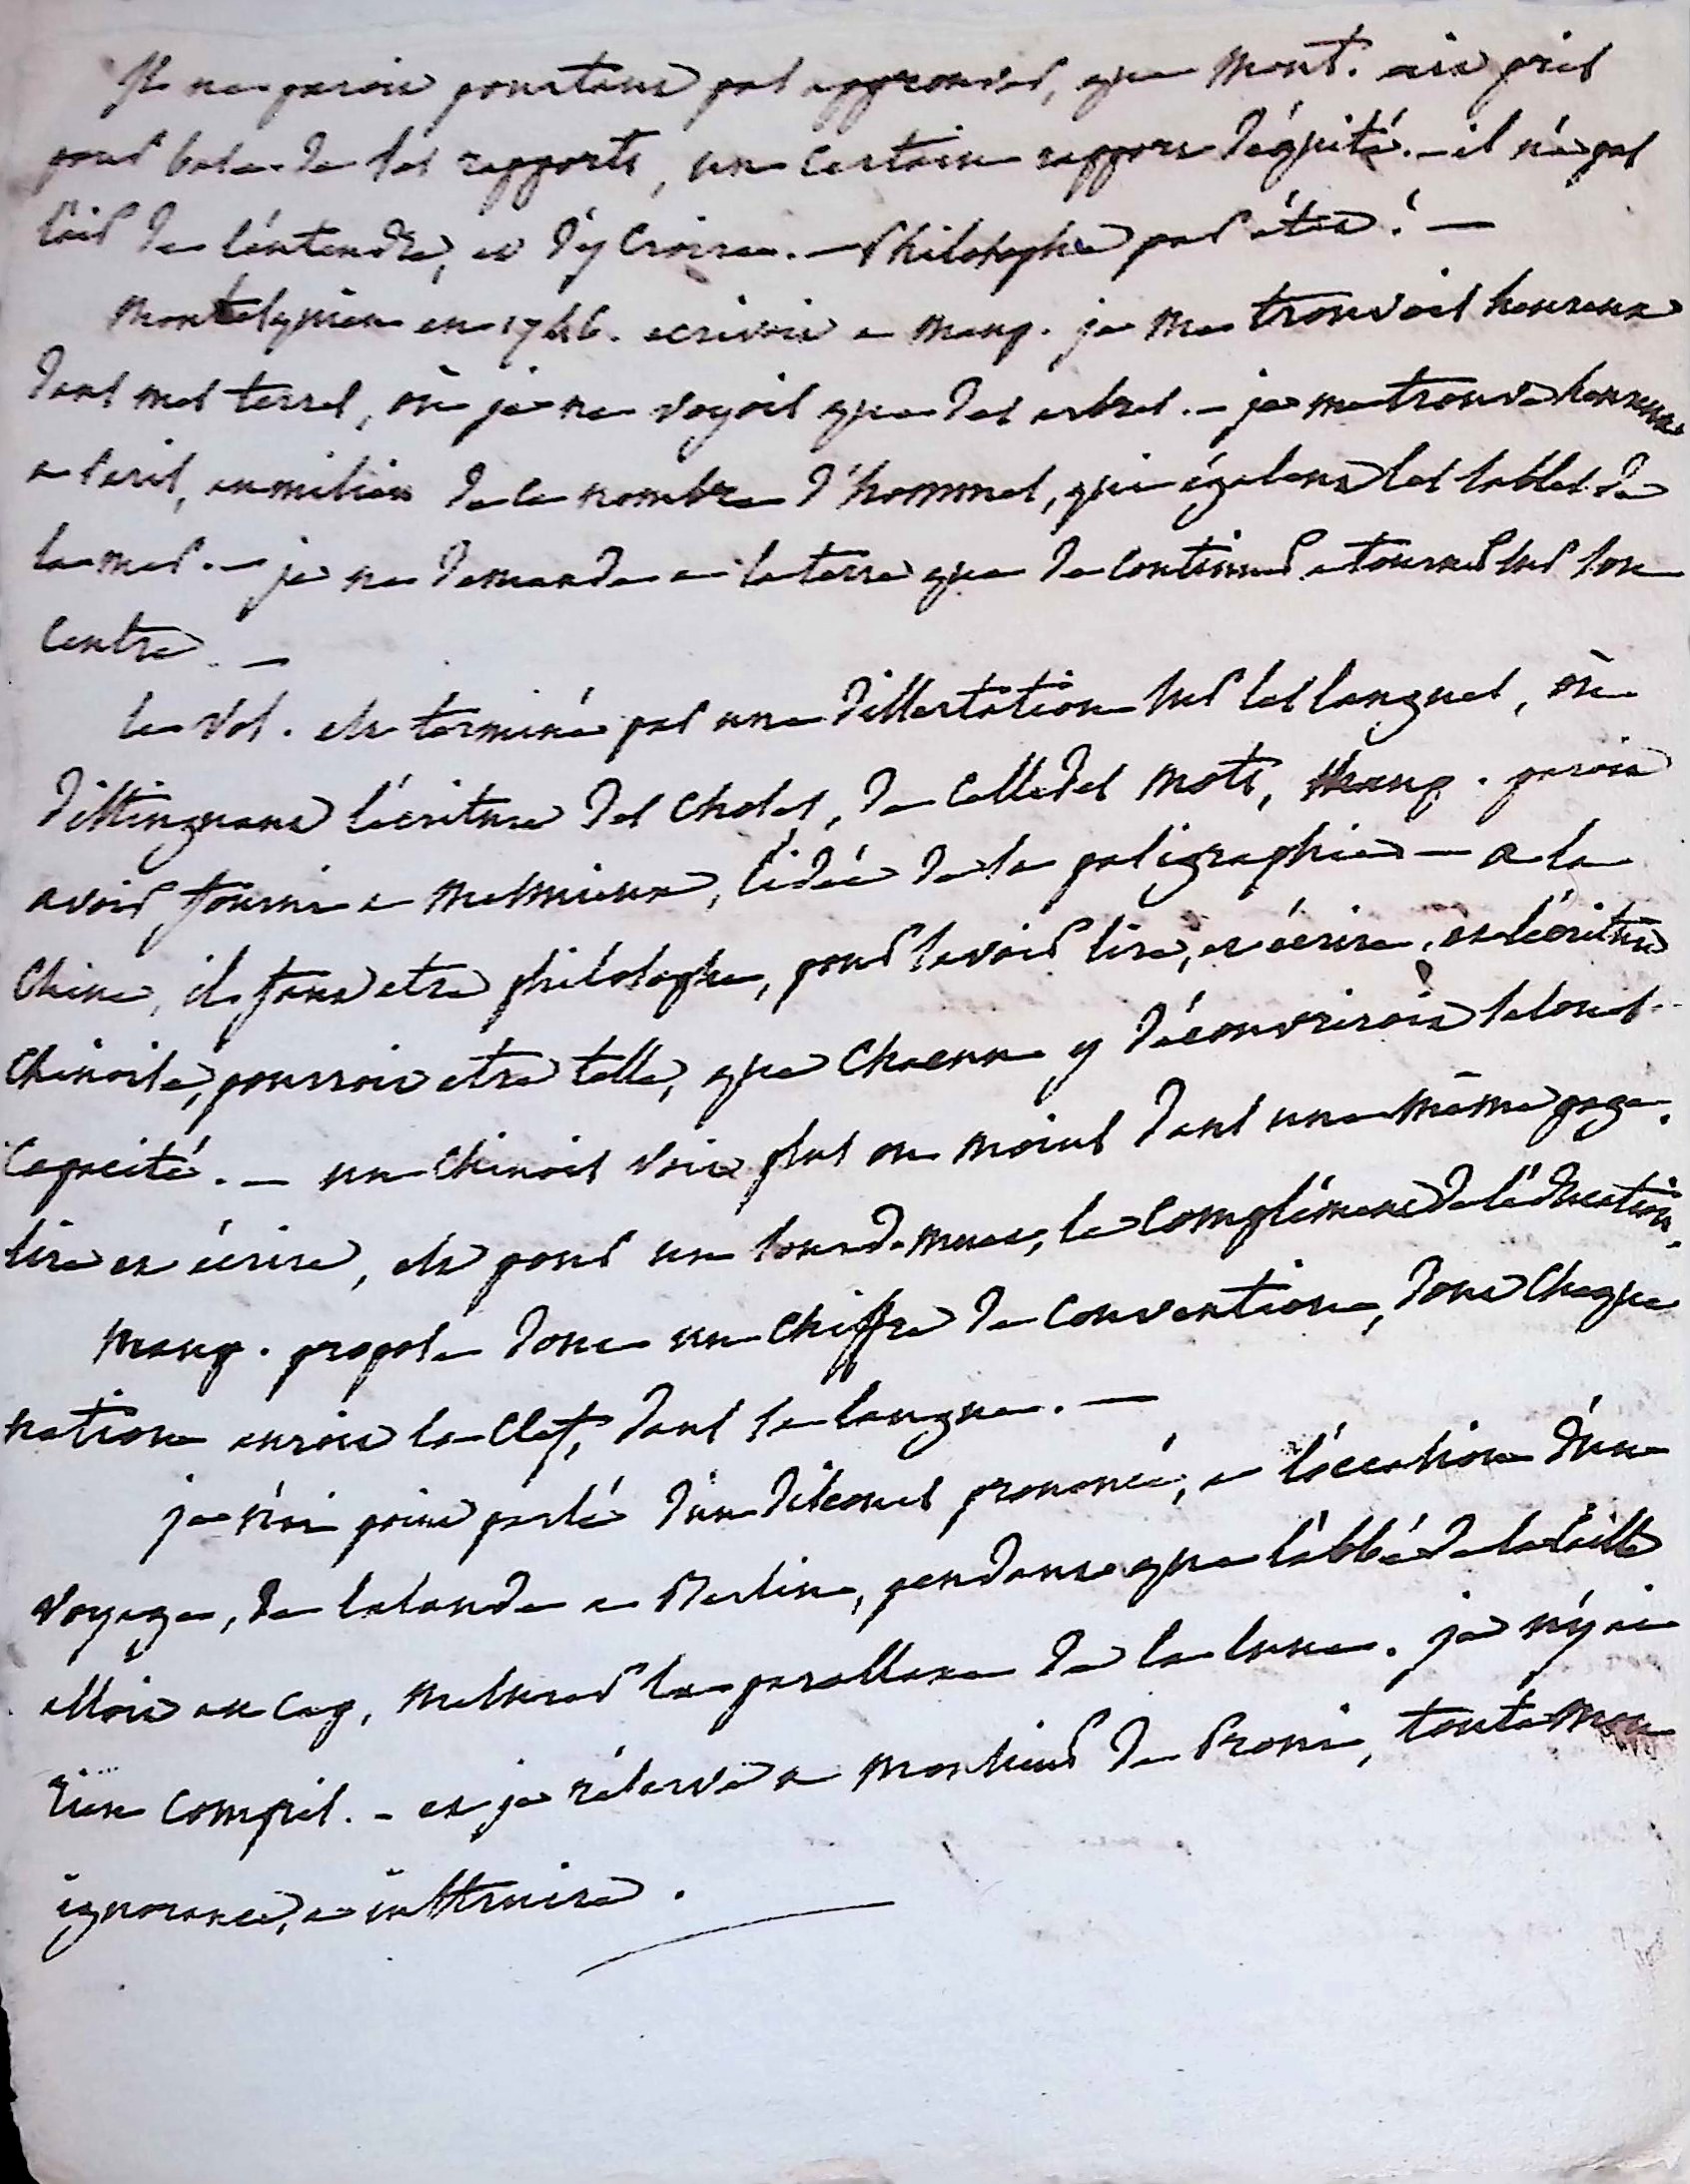 Il ne paroit pourtant pas approuver, que Mont. ait pris
pour base de ses rapports, un certain rapport d'équité. – il n'a pas
l'air de l'entendre, et d'y croire. – Philosophe par état ! –
Montesquieu en 1746. ecrivoit a Maup. je me trouvois heureux
dans mes terres, où je ne voyois que des arbres. – je me trouve heureux
a Paris, au milieu de ce nombre d'hommes, qui égalent les sables de
la mer. – je ne demande a la terre que de continuer a tourner sur son
centre. –
le vol. est terminé par une dissertation sur les langues, où
distinguant l'écriture des choses, de celle des mots, Maup. paroit
avoir fourni a Mesmieux, l'idée de la pasigraphie – a la
Chine, il faut etre philosophe, pour savoir lire, et écrire, et l'écriture
Chinoise, pourroit etre telle, que chacun y découvriroit selon sa
capacité. – un Chinois voit plus ou moins dans une même page.
lire et écrire, est pour un sourd muet, le complément de l'éducation.
Maup. propose donc un chiffre de convention, dont chaque
nation auroit la clef, dans sa langue. –
je n'ai point parlé d'un discours prononcé, a l'occasion d'un
voyage, de Lalande a Berlin, pendant que l'abbé de la Caille
alloit au Cap, mesurer la parallaxe de la lune. je n'y ai
rien compris. – et je réserve a monsieur de Proni, toute mon
ignorance, a instruire.